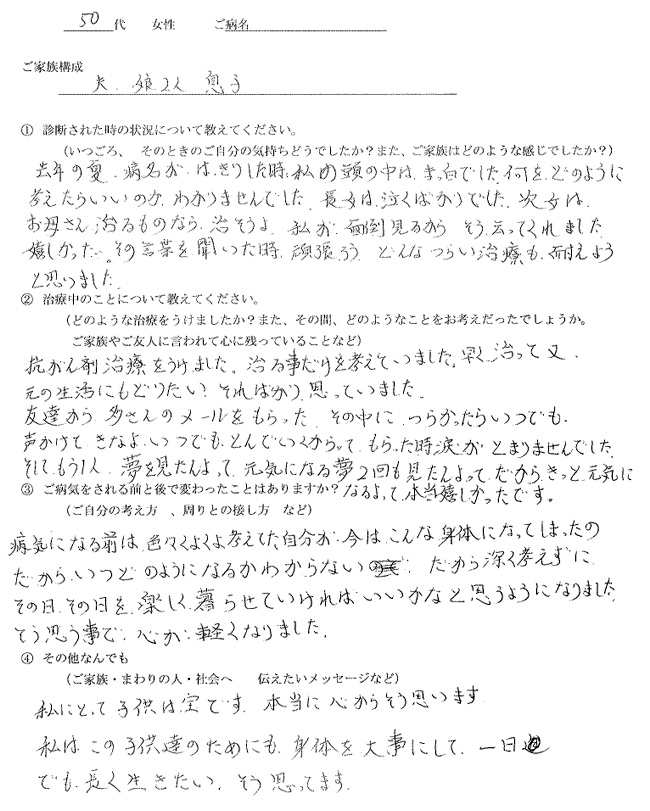 50 代 女性 ご病名
ご家族構成
夫 娘2人 息子
① 診断された時の状況について教えてください。
（いつごろ、 そのときのご自分の気持ちどうでしたか？また、ご家族はどのような感じでしたか？）
去年の夏、病名が、はっきりした時、私の頭の中は、真白でした。何を、どのように
考えたらいいのか、わかりませんでした。長女は、泣くばかりでした。次女は、
お母さん 治るものなら、治そうよ。私が、面倒見るから そう云ってくれました。
嬉しかった。その言葉を聞いた時、頑張ろう どんなつらい治療も、耐えよう
と思いました。
② 治療中のことについて教えてください。
（どのような治療をうけましたか？また、その間、どのようなことをお考えだったでしょうか。
ご家族やご友人に言われて心に残っていることなど）
抗がん剤治療をうけました。治る事だけを考えていました。早く、治って又、
元の生活にもどりたい。そればかり、思っていました。
友達から 多さんのメールをもらった。その中に、つらかったらいつでも、
声かけてきなよ。いつでも、とんでいくからって、もらった時、涙が とまりませんでした。
そして、もう1人、夢を見たんよって、元気になる夢2回も見たんよって、だから、きっと、元気に
③ ご病気をされる前と後で変わったことはありますか？ なるよって、本当嬉しかったです。
（ご自分の考え方 、周りとの接し方 など）
病気になる前は、色々くよくよ考えてた自分が、今は、こんな身体になってしまったの
だから、いつどのようになるかわからない だから深く考えずに、
その日、その日を、楽しく、暮らせていければ、いいかなと思うようになりました。
そう思う事で、心が、軽くなりました。
④ その他なんでも
（ご家族・まわりの人・社会へ 伝えたいメッセージなど）
私にとって子供は、宝です。本当に心からそう思います。
私は、この子供達のためにも、身体を大事にして、一日
でも、長く生きたい。そう思ってます。